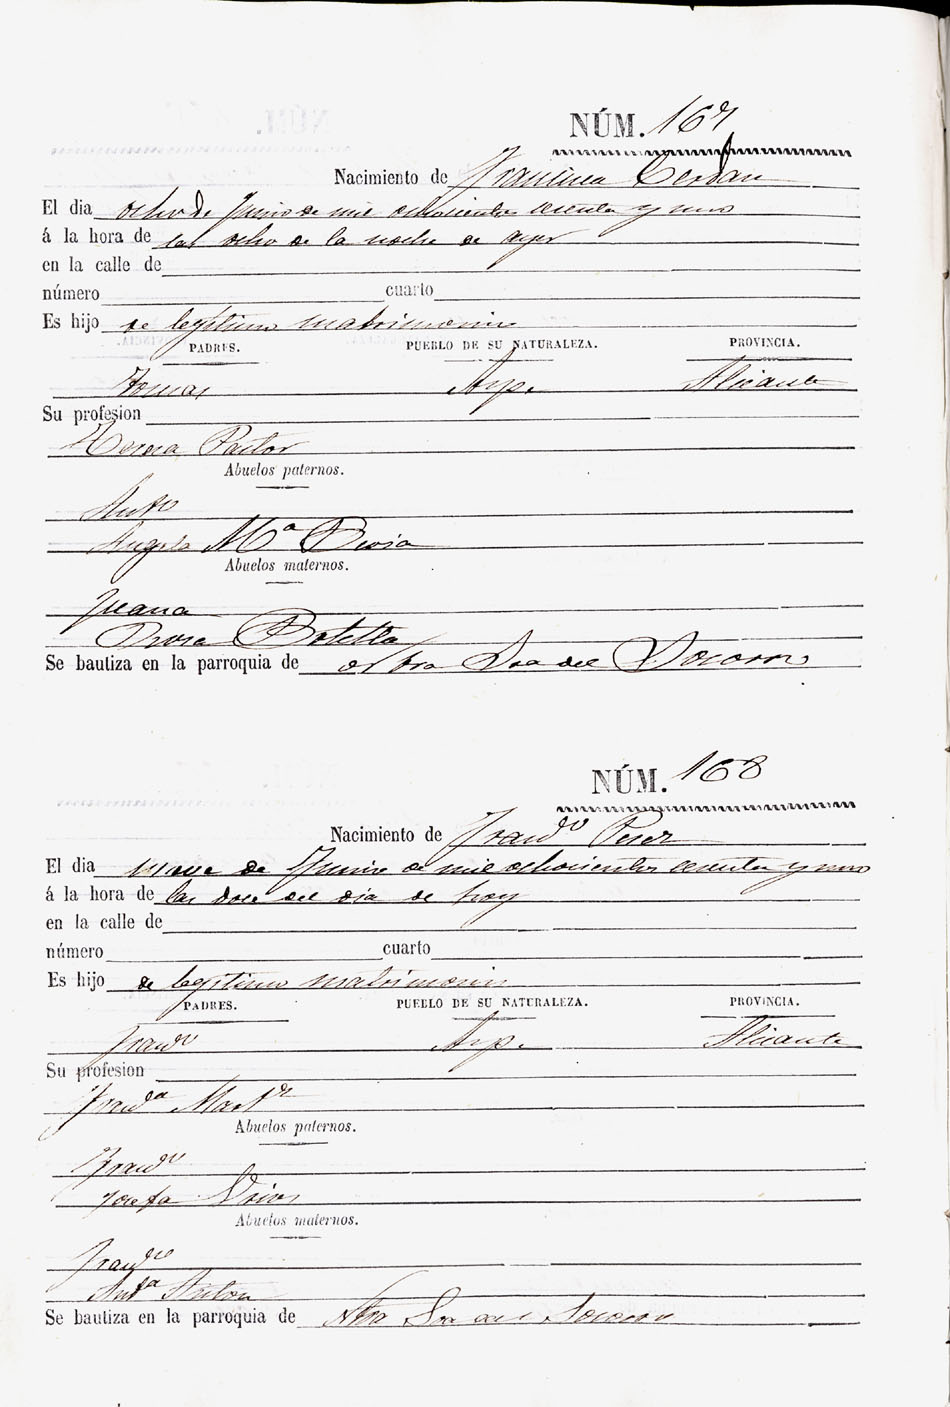 NÚM. 167
Nacimiento de Francisca Cerdan
El dia ocho de Junio de mil ochocientos sesenta y uno
á la hora de las ocho de la noche de ayer
en la calle de
número cuarto
Es hijo de legitimo matrimonio
PADRES. PUEBLO DE SU NATURALEZA. PROVINCIA.
Tomas Asp. Alicante
Su profesion
Teresa Pastor
Abuelos paternos.
Antº
Angela Mª
Abuelos maternos.
Rosa Botella
Se bautiza en la parroquia de Ntra Sra del Socorro
NÚM. 168
Nacimiento de Franco Perez
El dia nueve de Junio de mil ochocientos sesenta y uno
á la hora de las doce del dia de hoy
en la calle de
número cuarto
Es hijo de legitimo matrimonio
PADRES. PUEBLO DE SU NATURALEZA. PROVINCIA.
Franco Asp. Alicante
Su profesion
Franca Martz
Abuelos paternos.
Franco
Josefa
Abuelos maternos.
Franco
Anta Anton
Se bautiza en la parroquia de Ntra Sra del Socorro